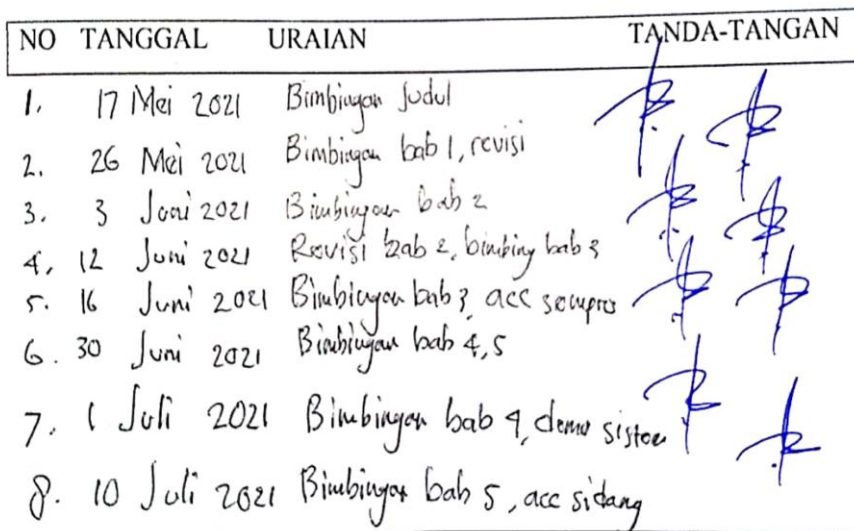 NO TANGGAL URAIAN TANDA-TANGAN
1. 17 Mei 2021 Bimbingan Judul
2. 26 Mei 2021 Bimbingan bab 1, revisi
3. 3 Juni 2021 Bimbingan bab 2
4. 12 Juni 2021 Revisi bab 2, bimbing bab 3
5. 16 Juni 2021 Bimbingan bab 3, acc sempro
6. 30 Juni 2021 Bimbingan bab 4,5
7. 1 Juli 2021 Bimbingan bab 4, demo sistem
8. 10 Juli 2021 Bimbingan bab 5, acc sidang